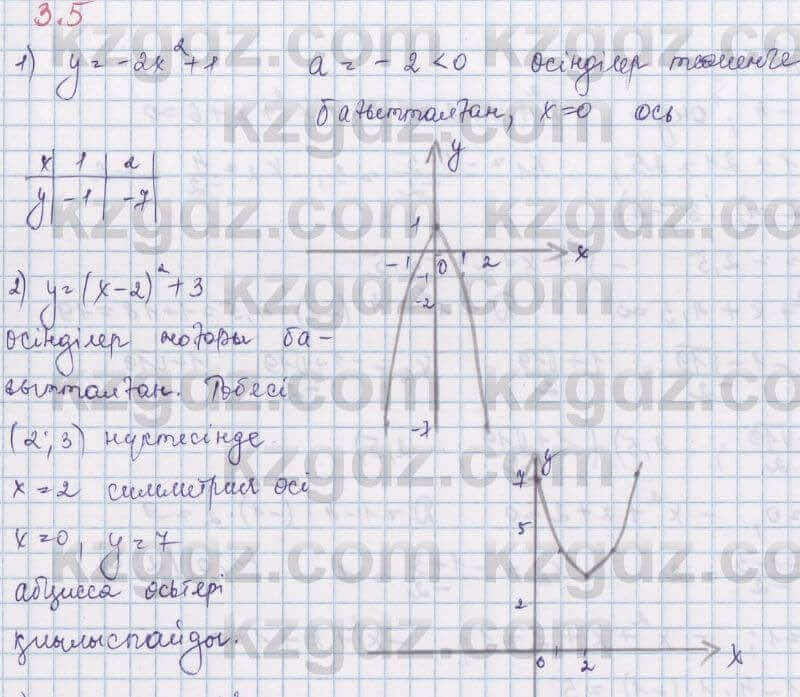 3.5
1) y = -2x²+1 a = -2 < 0 өсінділер төменге
бағытталған, x=0 ось
x 1 2
y -1 -7
y
1
-1 0 1 2 x
-1
-2
-7
2) y=(x-2)²+3
өсінділер жоғары ба-
ғытталған. Төбесі
(2; 3) нүктесінде
x = 2 симметрия осі
x=0, y=7
абцисса осьтері
қиылыспайды.
y
7
5
2
0 2 x
kzgdz.com